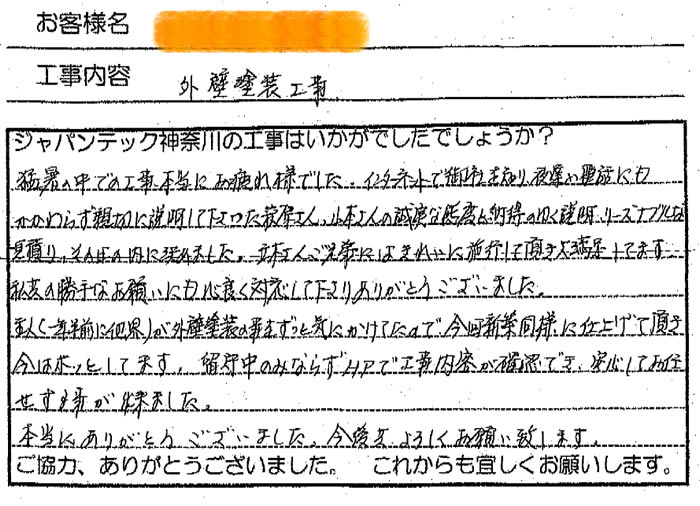 お客様名
工事内容 外壁塗装工事
ジャパンテック神奈川の工事はいかがでしたでしょうか？
猛暑の中での工事本当にお疲れ様でした。インターネットで御社を知り、夜遅い電話にも
かかわらず親切に説明して下さった萩原さん、山本さんの誠実な態度と納得のゆく説明、リーズナブルな
見積り、その日の内に決めました。立木さんご兄弟にはきれいに施行して頂き大満足してます
私共の勝手なお願いにも心良く対応して下さりありがとうございました。
主人(一年半前に他界)が外壁塗装の事をずっと気にかけてたので今回新築同様に仕上げて頂き
今はホッとしてます。留守中のみならずHPで工事内容が確認でき、安心してお任
せする事が出来ました。
本当にありがとうございました。今後共よろしくお願い致します。
ご協力、ありがとうございました。 これからも宜しくお願いします。